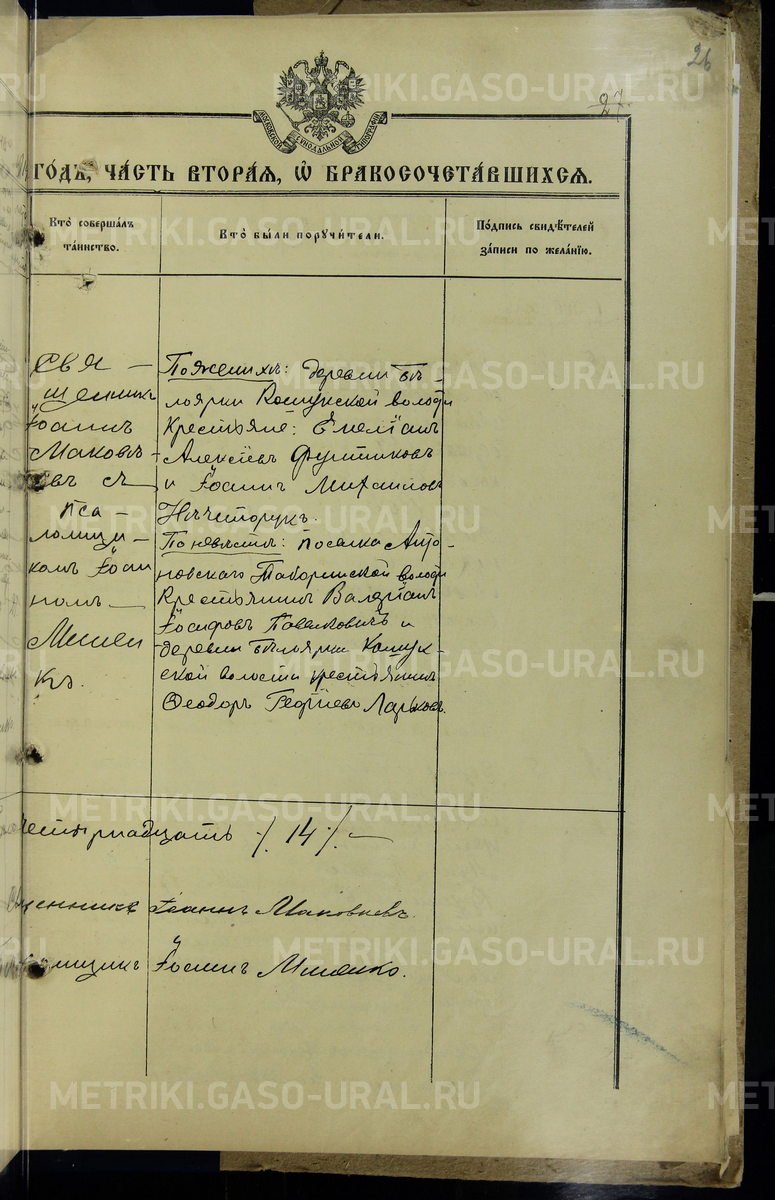 26
27.
МОСКОВСКОЙ СѴНОДАЛЬНОЙ ТИПОГРАФІИ
ГОДЪ, ЧАСТЬ ВТОРАЯ, Ѡ БРАКОСОЧЕТАВШИХСЯ.
Кто совершалъ таинство.
Кто были поручители.
Подпись свидѣтелей записи по желанію.
Свя-
щенникъ
Іоаннъ
Маковѣ-
евъ съ
пса-
ломщи-
комъ Іоан
номъ
По женихѣ: деревни Бѣ-
лоярки Кошукской волости
Крестьяне: Емеліанъ
Алексѣевъ
и Іоаннъ Михаиловъ
Нѣчипорукъ.
По невѣстѣ: поселка Анто-
новскаго Таборинской волости
Крестьянинъ Валеріанъ
Іосифовъ и
деревни Бѣлоярки Кошук-
ской волости крестьянинъ
Ѳеодоръ Георгіевъ Ларьковъ.
четырнадцать ·/. 14 ·/. —
щенникъ Іоаннъ Маковѣевъ.
омщикъ Іоаннъ
METRIKI.GASO-URAL.RU